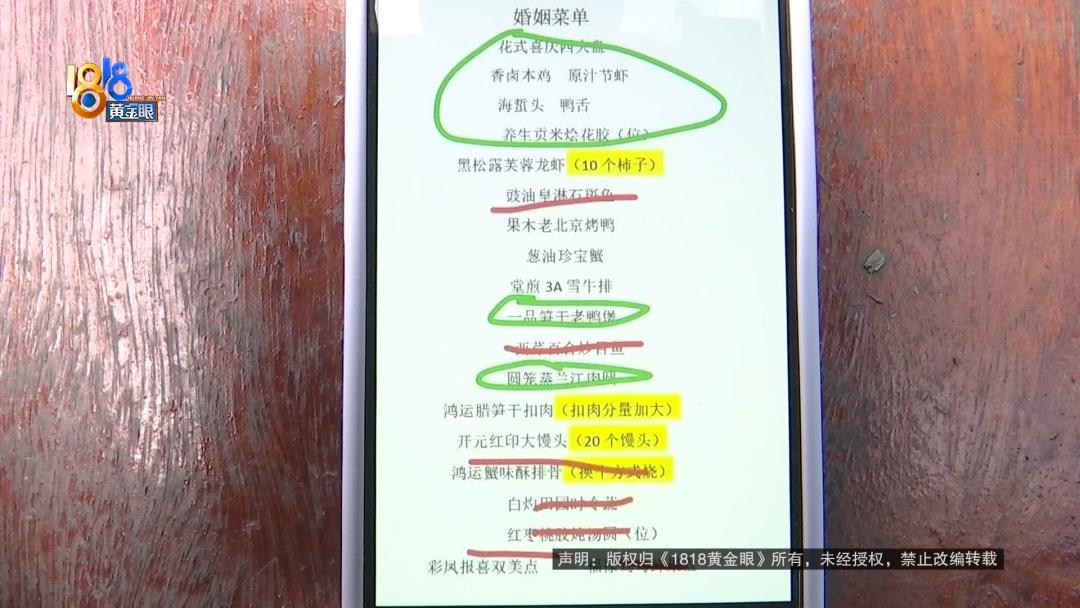 婚姻菜单
花式喜庆四大盘
1818
黄金眼
香卤本鸡 原汁节虾
海蜇头 鸭舌
养生贡米烩花胶（位）
黑松露芙蓉龙虾（10个柿子）
豉油皇淋石斑鱼
果木老北京烤鸭
葱油珍宝蟹
堂煎 3A 雪牛排
一品笋干老鸭煲
西芹百合炒目鱼
圆笼蒸兰江肉圆
鸿运腊笋干扣肉（扣肉分量加大）
开元红印大馒头（20个馒头）
鸿运蟹味酥排骨（换个方式烧）
白灼田园时令蔬
红枣桃胶炖汤圆（位）
彩凤报喜双美点
声明：版权归《1818黄金眼》所有，未经授权，禁止改编转载